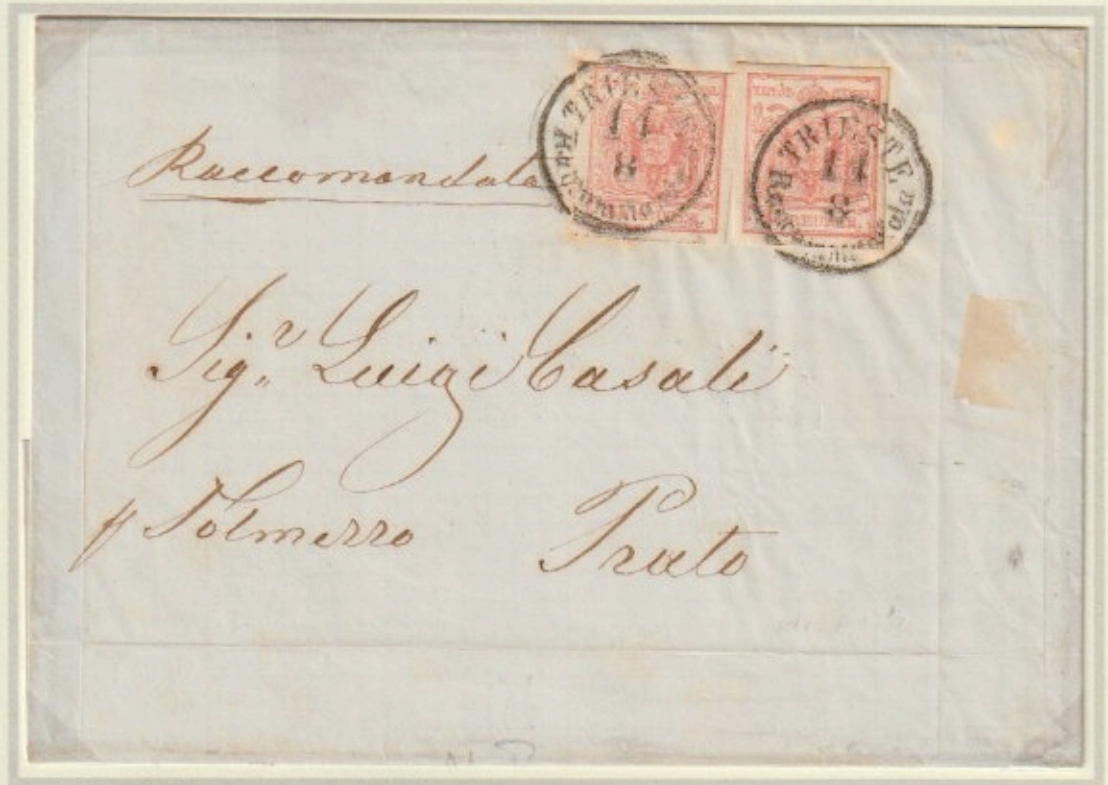 Raccomandata
TRIESTE
11
8
TRIESTE
11
8
Sig.r Luigi Casali
p Tolmezzo Prato